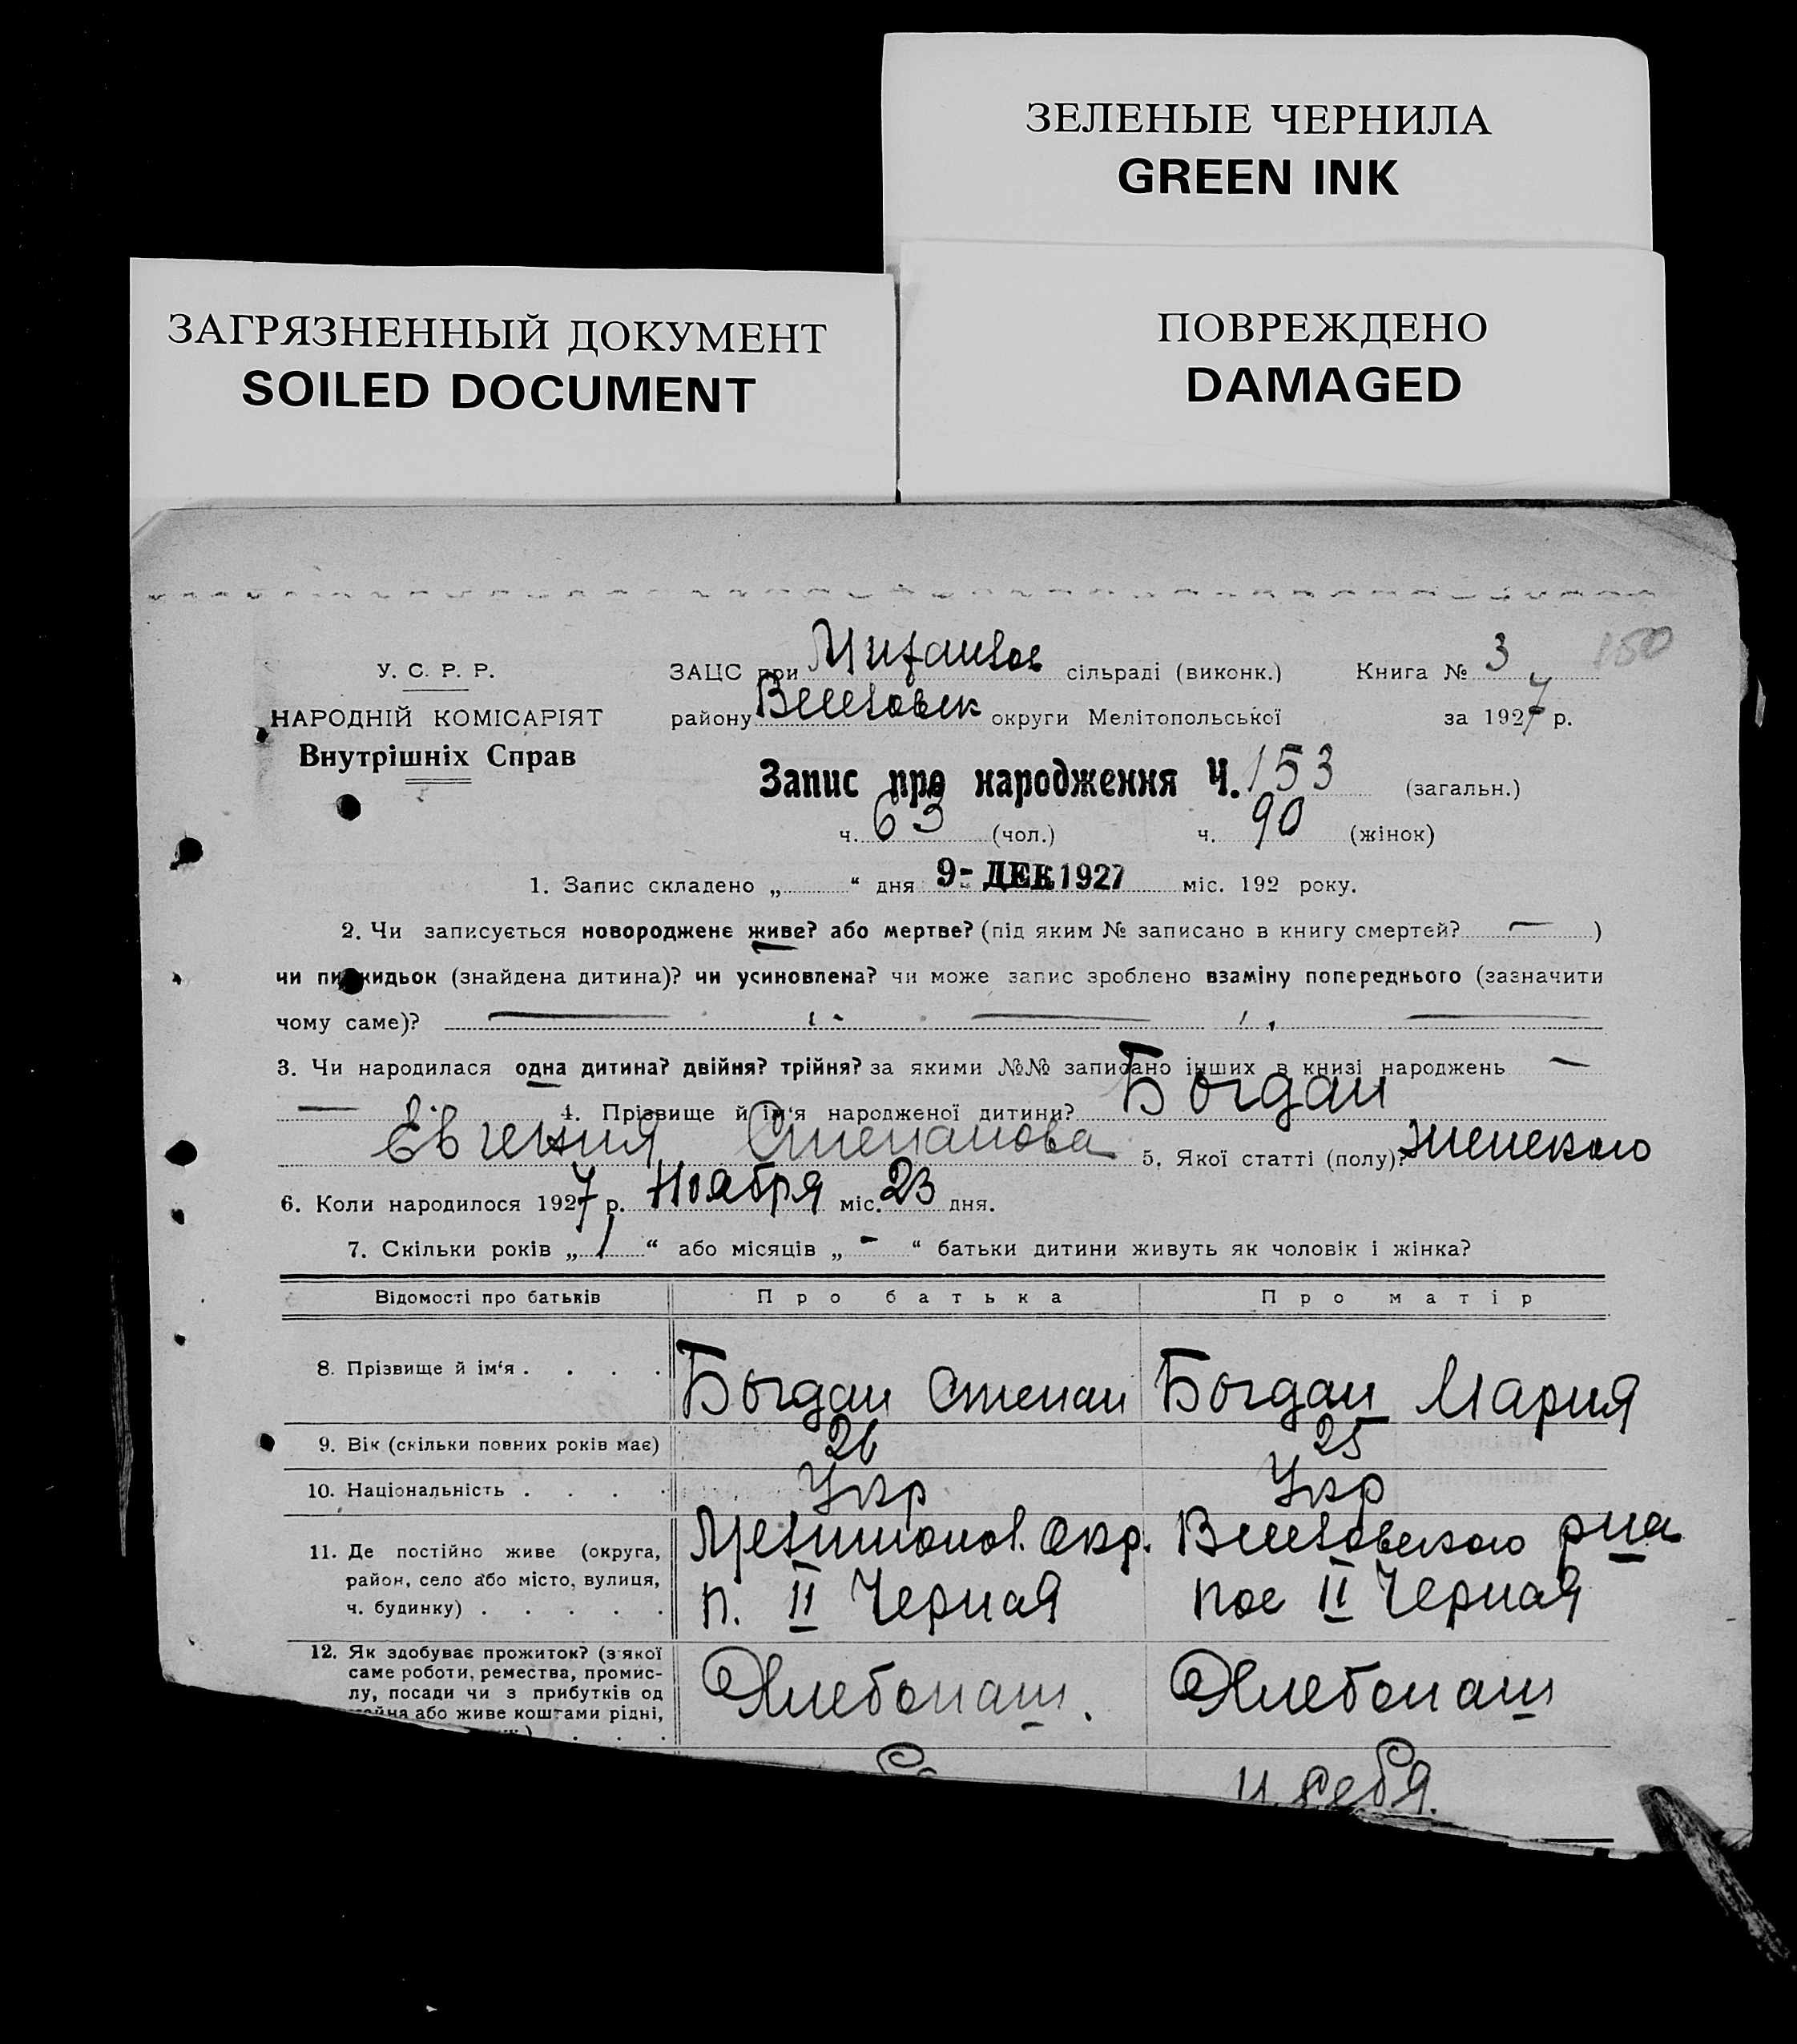 ЗЕЛЕНЫЕ ЧЕРНИЛА
GREEN INK
ЗАГРЯЗНЕННЫЙ ДОКУМЕНТ
SOILED DOCUMENT
ПОВРЕЖДЕНО
DAMAGED
150
У. С. Р. Р.
НАРОДНІЙ КОМІСАРІЯТ
Внутрішніх Справ
ЗАЦС при сільраді (виконк.) Книга № 3
району округи Мелітопольської за 1927 р.
Запис про народження Ч. 153 (загальн.)
ч. 63 (чол.) ч. 90 (жінок)
1. Запис складено „ “ дня 9- ДЕК 1927 міс. 192 року.
2. Чи записується новороджене живе? або мертве? (під яким № записано в книгу смертей? — )
чи підкидьок (знайдена дитина)? чи усиновлена? чи може запис зроблено взаміну попереднього (зазначити
чому саме)? — — —
3. Чи народилася одна дитина? двійня? трійня? за якими №№ записано інших в книзі народжень —
— 4. Прізвище й ім‘я народженої дитини? Богдан
Евгения Степанова 5. Якої статті (полу)? женского
6. Коли народилося 1927 р. Ноября міс. 23 дня.
7. Скільки років „ 1 “ або місяців „ - “ батьки дитини живуть як чоловік і жінка?
Відомості про батьків Про батька Про матір
8. Прізвище й ім‘я . . . . Богдан Степан Богдан Мария
9. Вік (скільки повних років має) 26 25
10. Національність . . . . Укр Укр
11. Де постійно живе (округа,
район, село або місто, вулиця,
ч. будинку) . . . . .
Мелитопол. Окр.
п. II Черная
рна
пос II Черная
12. Як здобуває прожиток? (з якої
саме роботи, ремества, промис-
лу, посади чи з прибутків од
майна або живе коштами рідні,
Хлебопаш. Хлебопаш
себя.